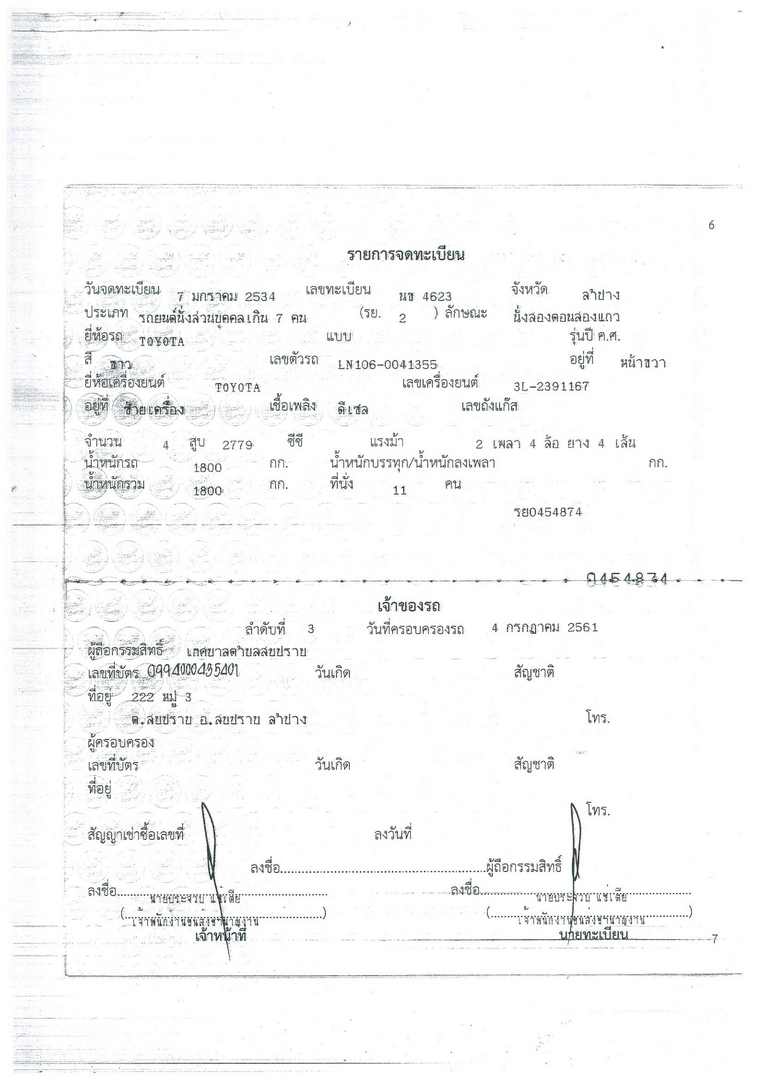 6
รายการจดทะเบียน
วันจดทะเบียน 7 มกราคม 2534 เลขทะเบียน นข 4623 จังหวัด ลำปาง
ประเภท รถยนต์นั่งส่วนบุคคลเกิน 7 คน (รย. 2 ) ลักษณะ นั่งสองตอนสองแถว
ยี่ห้อรถ TOYOTA แบบ รุ่นปี ค.ศ.
สี ขาว เลขตัวรถ LN106-0041355 อยู่ที่ หน้าขวา
ยี่ห้อเครื่องยนต์ TOYOTA เลขเครื่องยนต์ 3L-2391167
อยู่ที่ ซ้ายเครื่อง เชื้อเพลิง ดีเซล เลขถังแก๊ส
จำนวน 4 สูบ 2779 ซีซี แรงม้า 2 เพลา 4 ล้อ ยาง 4 เส้น
น้ำหนักรถ 1800 กก. น้ำหนักบรรทุก/น้ำหนักลงเพลา กก.
น้ำหนักรวม 1800 กก. ที่นั่ง 11 คน
รย0454874
0454874
เจ้าของรถ
ลำดับที่ 3 วันที่ครอบครองรถ 4 กรกฎาคม 2561
ผู้ถือกรรมสิทธิ์ เทศบาลตำบลสบปราบ
เลขที่บัตร 0994000435401 วันเกิด สัญชาติ
ที่อยู่ 222 หมู่ 3
ต.สบปราบ อ.สบปราบ ลำปาง โทร.
ผู้ครอบครอง
เลขที่บัตร วันเกิด สัญชาติ
ที่อยู่
โทร.
สัญญาเช่าซื้อเลขที่ ลงวันที่
ลงชื่อ ผู้ถือกรรมสิทธิ์
ลงชื่อ ลงชื่อ
นายประจวบ นายประจวบ
(เจ้าพนักงานขนส่งชำนาญงาน) (เจ้าพนักงานขนส่งชำนาญงาน)
เจ้าหน้าที่ นายทะเบียน
7